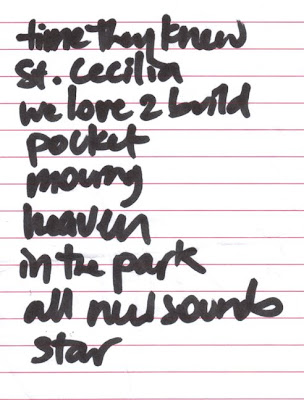 time they knew
St. Cecilia
we love 2 build
pocket
moving
heaven
in the park
all nu sounds
star